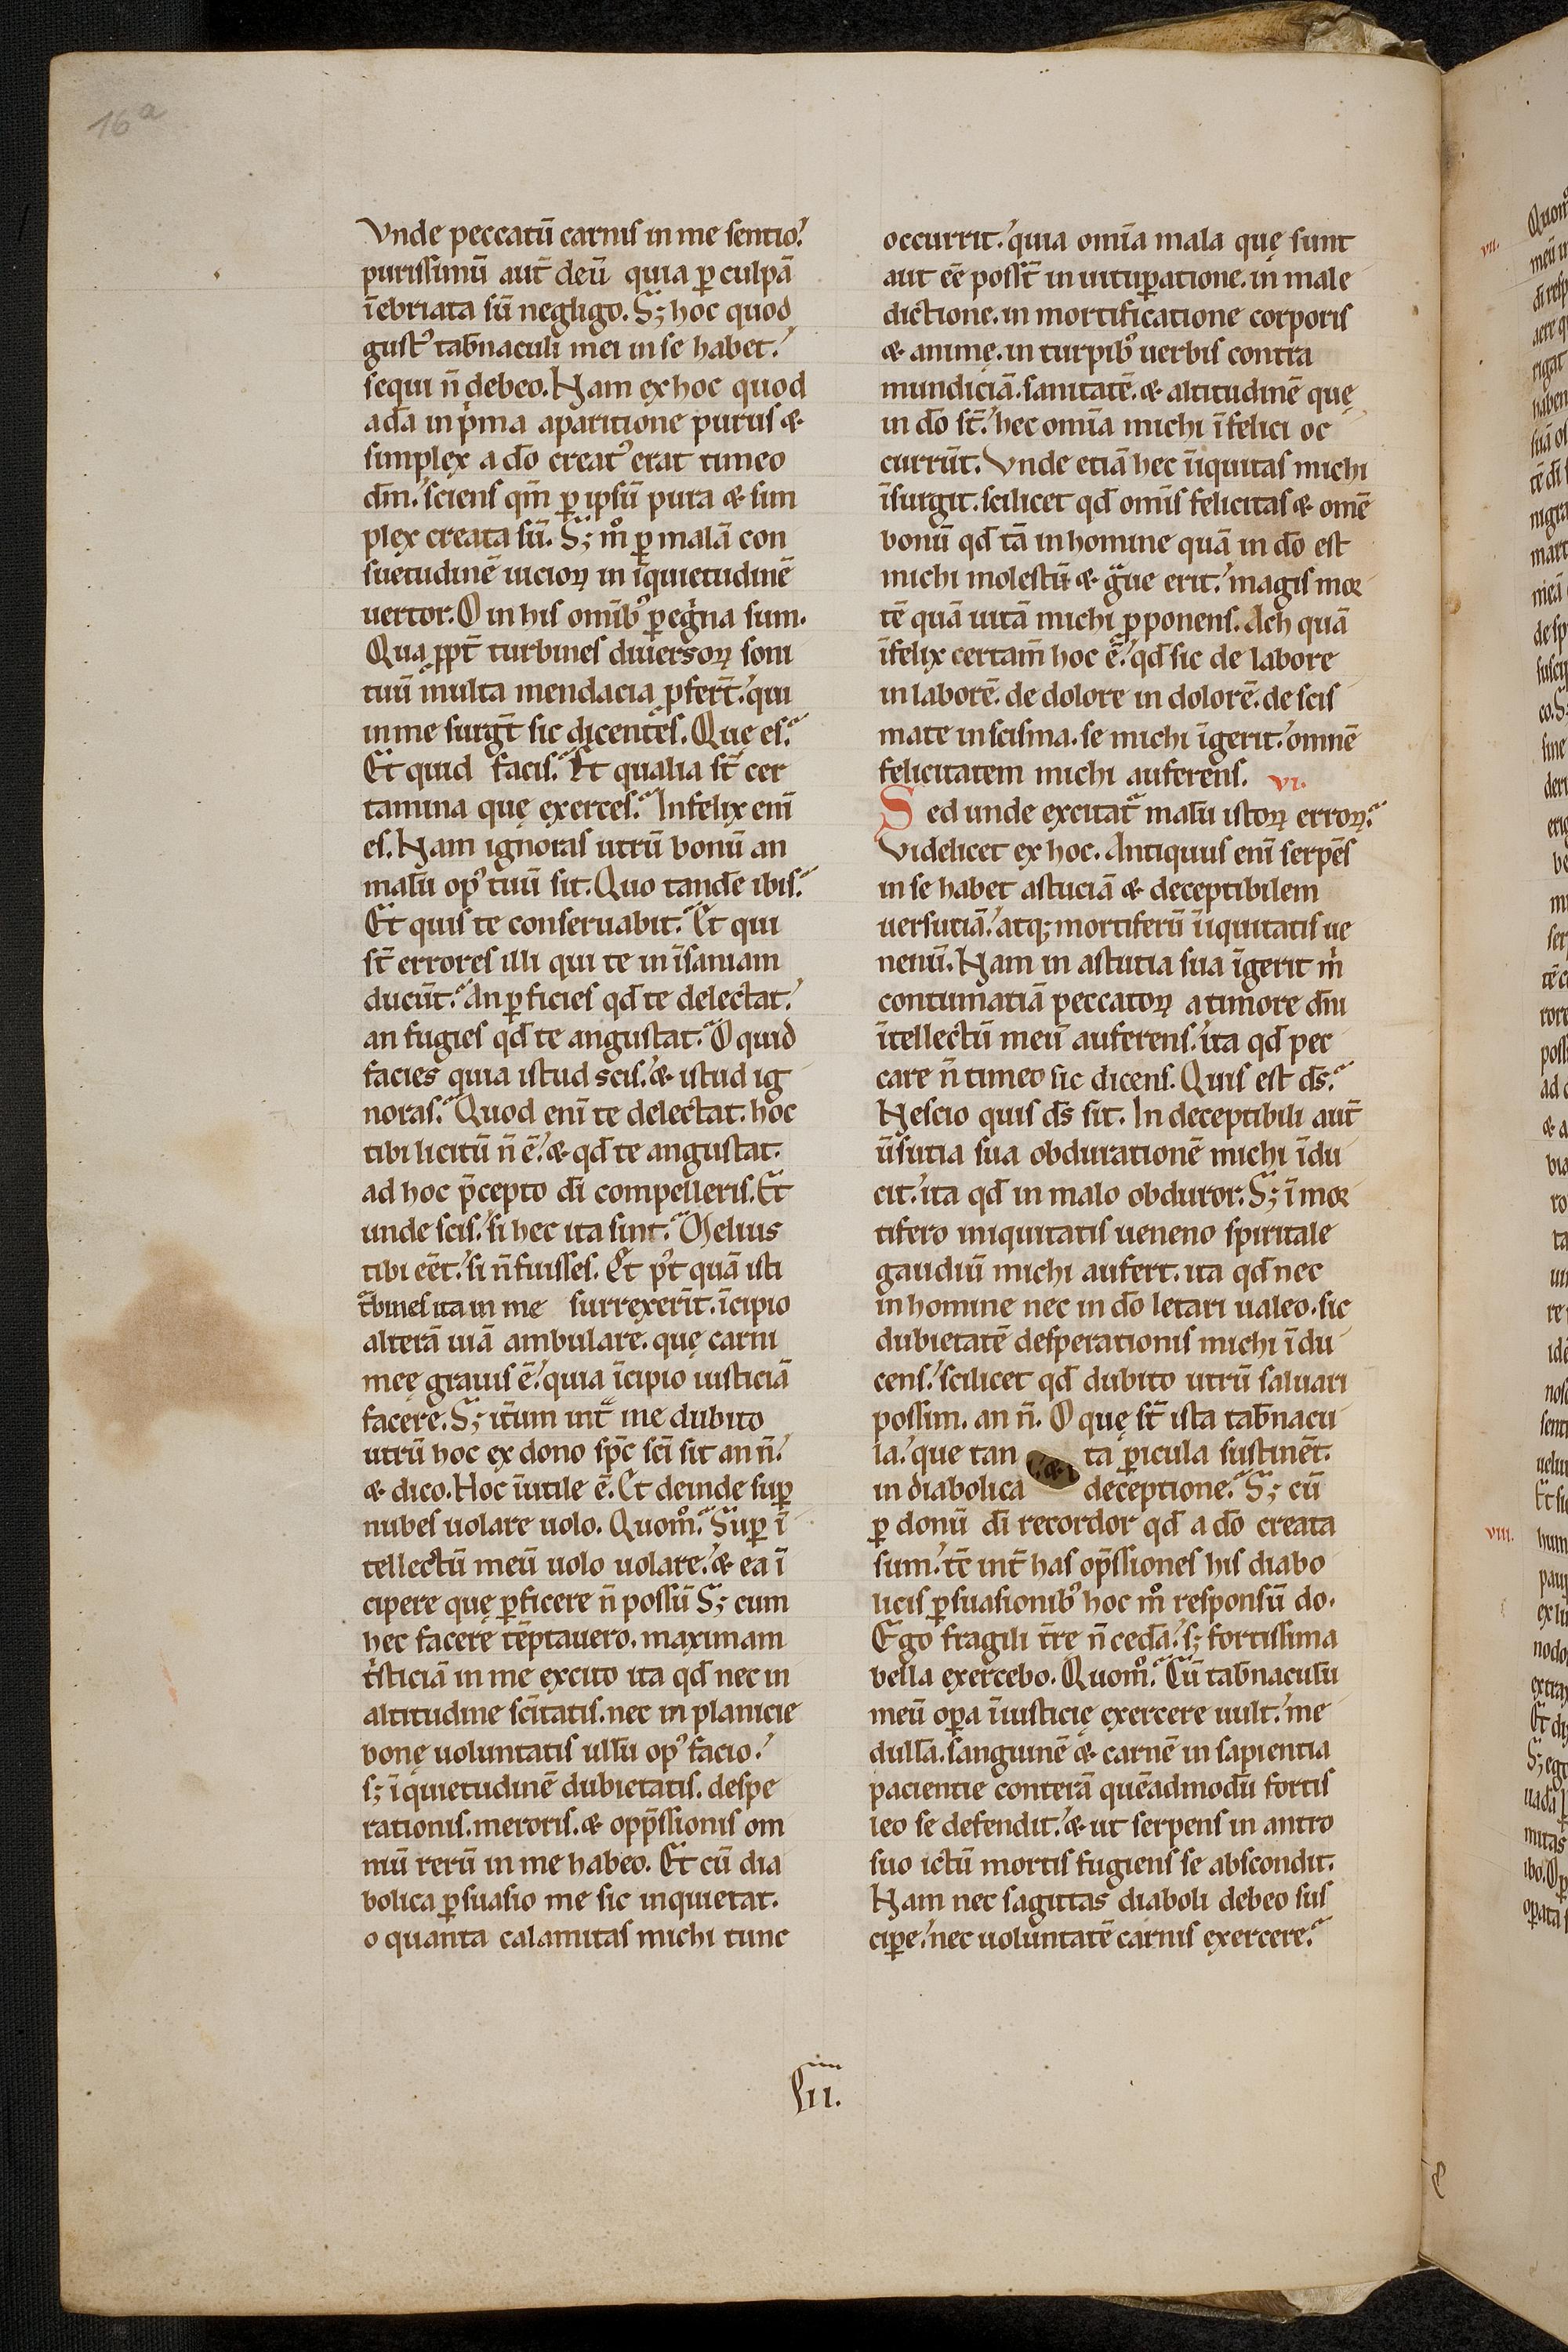 16a
Vnde peccatū carnis in me sentio.
purissimū aut̄ deū quia ꝑ culpā
īebriata sū negligo. S; hoc quod
gustꝰ tab̄naculi mei in se habet.
sequi n̄ debeo. Nam ex hoc quod
adā in pͥma aparitione purus &
simplex a dō creatꝰ erat timeo
dm̄. sciens qm̄ ꝑ ipsū pura & sim
plex creata sū. S; mͦ ꝑ malā con
suetudinē uicioꝝ in īquietudinē
uertor. O in his omībꝰ ꝑegͥna sum.
Qua ꝓpt̄ turbines diuersoꝝ som
tuū multa mendacia ꝓfert̄. qui
in me surgt̄ sic dicentes. Quę es.
Et quid facis. Et qualia st̄ cer
tamina quę exerces. Infelix enī
es. Nam ignoras utrū bonū an
malū opꝰ tuū sit. Quo tandē ibis.
Et quis te conseruabit. Et qui
st̄ errores illi qui te in īsaniam
ducūt. An ꝑficies qd̄ te delectat.
an fugies qd̄ te angustat. O quid
facies quia istud scis. & istud ig
noras. Quod enī te delectat. hoc
tibi licitū n̄ ē. & qd̄ te angustat.
ad hoc p̄cepto dī compelleris. Et
unde scis. si hec ita sint. Melius
tibi eēt. si n̄ fuisses. Et pꝰt quā isti
tᷣbines ita in me surrexerīt. īcipio
alterā uiā ambulare. quę carni
meę grauis ē. quia īcipio iusticiā
facere. S; itm̄um int̄ me dubito
utrū hoc ex dono spc̄ scī sit an n̄.
& dico. Hoc īutile ē. Et deinde suꝑ
nubes uolare uolo. Quomͦ. Suꝑ ī
tellectū meū uolo uolare. & ea ī
cipere quę ꝑficere n̄ possū S; cum
hec facere tēptauero. maximam
tͥsticiā in me excito ita qd̄ nec in
altitudine scītatis. nec in planicie
bonę uoluntatis ullū opꝰ facio.
s; īquietudinē dubietatis. despe
rationis. meroris. & opp̄ssionis om
niū rerū in me habeo. Et cū dia
bolica ꝑsuasio me sic inquietat.
o quanta calamitas michi tunc
occurrit. quia omīa mala quę sunt
aut eē posst̄ in uituꝑatione. in male
dictione. in mortificatione corporis
& animę. in turpibꝰ uerbis contra
mundiciā. sanitatē. & altitudinē quę
in dō st̄. hec omīa michi īfelici oc
currūt. Vnde etiā hec īiquitas michi
īsurgit. scilicet qd̄ omīs felicitas & omē
bonū qd̄ tā in homine quā in dō est
michi molestū & gᷓue erit. magis moꝛ
tē quā uitā michi ꝓponens. Ach quā
īfelix certam̄ hoc ē. qd̄ sic de labore
in laborē. de dolore in dolorē. de scis
mate in scisma. se michi īgerit. omnē
felicitatem michi auferens. VI.
Sed unde excitatᷣ malū istoꝝ erroꝝ.
Videlicet ex hoc. Antiquus enī serpēs
in se habet astuciā & deceptibilem
uersutiā. atq; mortiferū īiquitatis ue
nenū. Nam in astutia sua īgerit mͥ
contumatiā peccatoꝝ a timore dn̄i
ītellectū meū auferens. ita qd̄ pec
care n̄ timeo sic dicens. Quis est ds̄.
Nescio quis ds̄ sit. In deceptibili aut̄
ūsutia sua obdurationē michi īdu
cit. ita qd̄ in malo obduror. S; ī moꝛ
tifero iniquitatis ueneno spiritale
gaudiū michi aufert. ita qd̄ nec
in homine nec in dō letari ualeo. sic
dubietatē desperationis michi īdu
cens. scilicet qd̄ dubito utrū saluari
possim. an n̄. O quę st̄ ista tab̄nacu
la. que tan ta ꝑicula sustinēt.
in diabolica deceptione. S; cū
ꝑ donū dī recordor qd̄ a dō creata
sum. tc̄ int̄ has op̄ssiones his diabo
licis ꝑsuasionibꝰ hoc mͦ responsū do.
Ego fragili tr̄e n̄ cedā. s; fortissima
bella exercebo. Quomͦ. Cū tab̄naculū
meū oꝑa īiusticię exercere uult. me
dullā. sanguinē & carnē in sapientia
pacientie conterā quēadmodū fortis
leo se defendit. & ut serpens in antro
suo ictū mortis fugiens se abscondit.
Nam nec sagittas diaboli debeo sus
ciꝑe. nec uoluntatē carnis exercere.